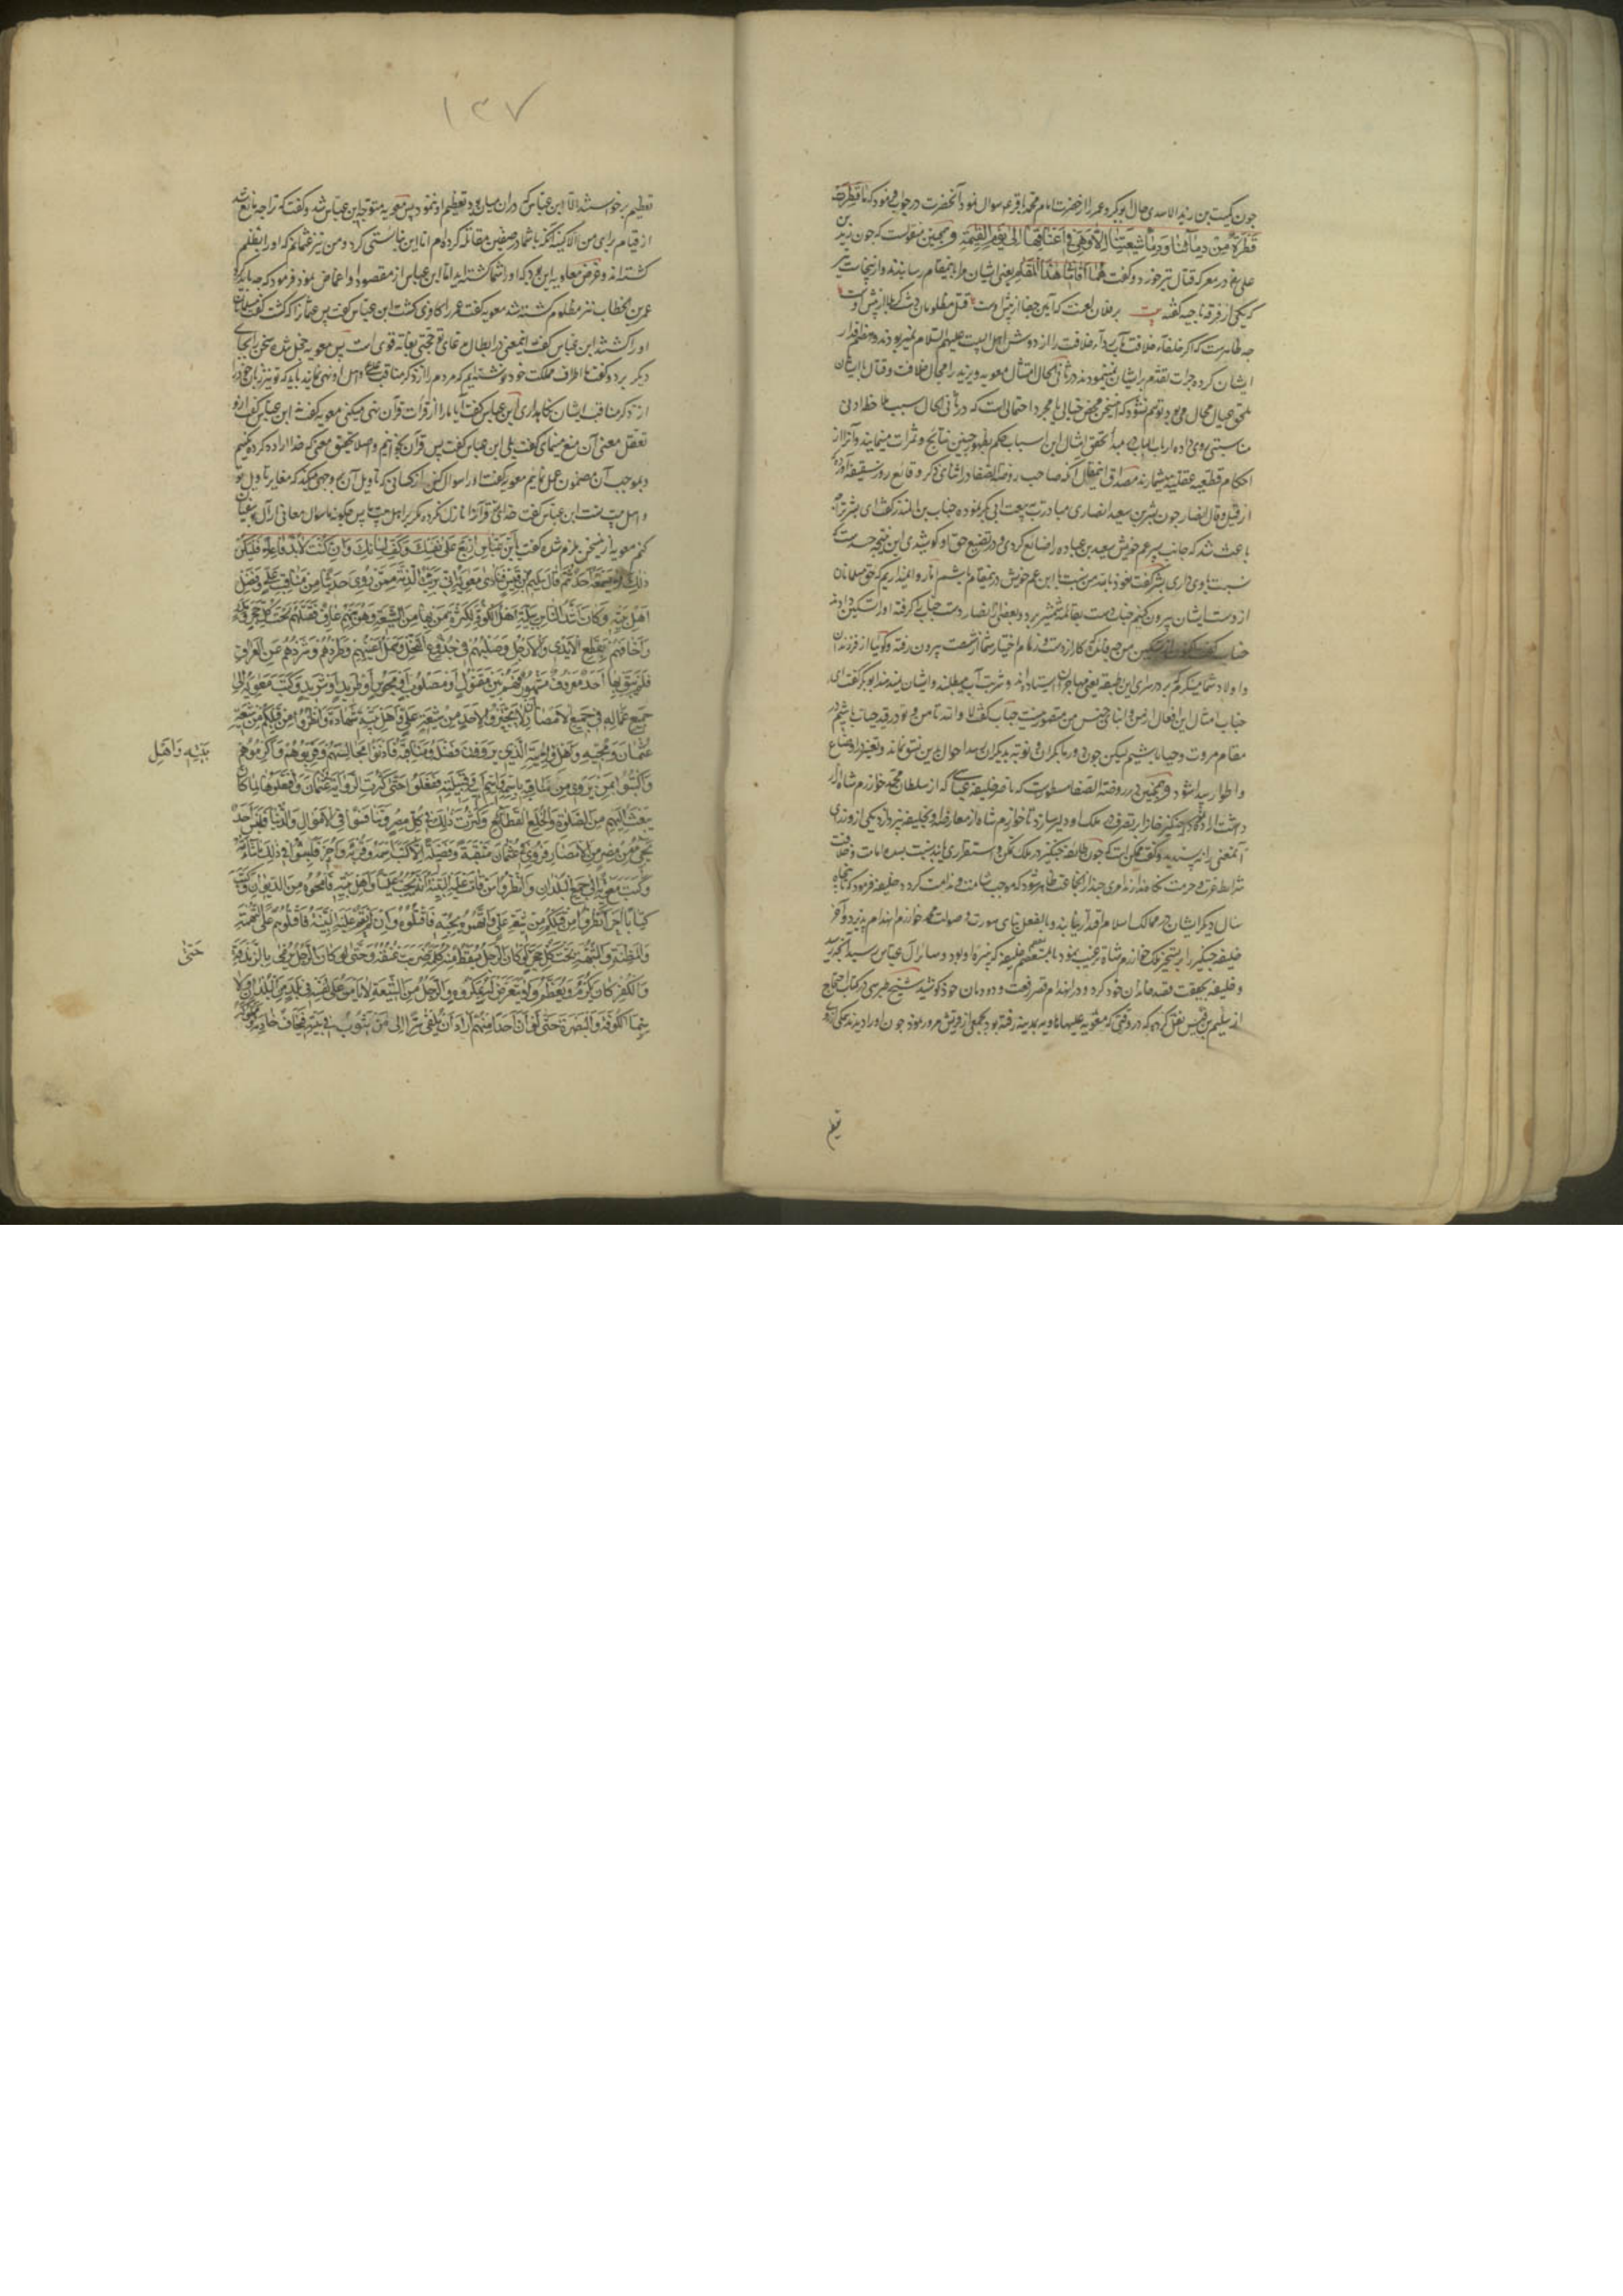 چون کمیت بن زید الاسدی حال ابوبکر و عمر را از حضرت امام محمد باقر ع سوال نمود آنحضرت در جواب فرمود که ما قطرت
قطرة من دمائنا و دماء شیعتنا الا و هی فی اعناقهما الی یوم القیمة و همچنین منقولست که چون زید بن
علی رض در معرکه قتال تیر خورد و گفت هما اقامانا هذا المقام یعنی ایشان ما را بدینمقام رسانیدند و ازینجاست
که یکی از فرقه ناجیه گفته بیت بر فلان لعنت که آیین جفا از پیش اوست قتل مظلومان دشت کربلا از پیش اوست
چه ظاهرست که اگر خلفاء خلافت مآب رداء خلافت را از دوش اهل البیت علیهم السلام نمیربودند و
ایشان کرده جرات تقدم بر ایشان نمینمودند در ثانی الحال امثال معویه و یزید را مجال خلافت و قتال با ایشان
محال می بود و توهم نشود که این سخن محض خیالی یا مجرد احتمالی است که در ثانی الحال سبب
مناسبتی روی داده ارباب الباب بعد از تحقق امثال این اسباب حکم بظهور چنین نتایج و ثمرات مینمایند و آنرا از
احکام قطعیه عقلیه میشمارند مصداق اینمقال آنکه صاحب روضة الصفا در اثنای ذکر وقائع روز سقیفه آورده
از قیل و قال انصار چون بشر بن سعد انصاری مبادرت ببیعت ابی بکر نمود حباب بن المنذر گفت ای بشر ترا چه
باعث شد که جانب پسر عم خویش سعد بن عباده را ضائع کردی و در تضییع حق او کوشیدی این نتیجه حسدست که
نسبت با وی داری بشر گفت نعوذ بالله من نسبت با ابن عم خویش در مقام باشم اما روا نمیداریم که حق مسلمانان
از دست ایشان بیرون کنیم حباب دست بقائمه شمشیر برد و بعضی از انصار دست حباب گرفته او را تسکین دادند
حباب گفت تسکین من چه فائده که کار از دست و زمام اختیار شما از شست بیرون رفته و گویا از فرزندان
و اولاد شما مینگرم که بر در سرای این طبقه یعنی مهاجران ایستاده اند و شربت آب میطلبند و ایشان نمیدهند ابوبکر گفت ای
حباب امثال این افعال از من و ابنای جنس من متصورست حباب گفت لا والله تا من و تو در قید حیات باشیم در
مقام مروت و حیا باشیم لیکن چون دور ما بگذرد و نوبت بدیگران رسد احوال برین نسق نماند و تغییر در اوضاع
و اطوار پیدا شود و همچنین در روضة الصفا مسطورست که ناصر خلیفه عباسی که از سلطان محمد خوارزم شاه آزار
داشت اراده نمود که چنگیز خان را بر تصرف ملک او دلیر سازد تا خوارزم شاه از معارضه او بخلیفه نپردازد یکی از وزرای
آنمعنی را نپسندید و گفت ممکن است که چون طائفه چنگیز در ملک تمکن و استقراری یابند نسبت بسده امامت و خلافت
شرایط عزت و حرمت نگاه ندارند و امری چند از آنجماعت ظاهر شود که موجب شآمت و ندامت گردد خلیفه فرمود که تا پنجاه
سال دیگر ایشان در ممالک اسلام اقتدار نیابند و بالفعل بنای سورت و صولت محمد خوارزم انهدام پذیرد و آخر
خلیفه چنگیز را بر تسخیر ملک خوارزم شاه ترغیب نمود تا بمستعصم خلیفه که نبیره او بود و سائر آل عباس رسید آنچه رسید
و خلیفه بحقیقت قصد خاندان خود کرد و در انهدام قصر رفعت دودمان خود کوشید شیخ طبرسی در کتاب احتجاج
از سلیم بن قیس نقل کرده که در وقتی که معویه علیه الهاویه بمدینه رفته بود بجمعی از قریش مرور نمود چون او را دیدند همگی از برای
تعظیم
۱۳۷
تعظیم برخواستند الا ابن عباس که در آن میان بود و تعظیم او ننمود پس معویه متوجه ابن عباس شد و گفت که ترا چه مانع شد
از قیام برای من الا کینه آنکه با شما در صفین مقاتله کرده ام اما این نبایستی کرد و من نیز عثمانم که او را بظلم
کشته اند و غرض معاویه این بود که او را شما کشته اید اما ابن عباس از مقصود او اغماض نمود فرمود که چه باید کرد
عمر بن خطاب نیز مظلوم کشته شد معویه گفت عمر را کافری کشت ابن عباس گفت پس عثمان را که کشت گفت مسلمانان
او را کشتند ابن عباس گفت اینمعنی در ابطال مدعای تو حجتی بغایة قوی است پس معویه خجل شده سخن را بجای
دیگر برد و گفت ما باطراف مملکت خود نوشته ایم که مردم را از ذکر مناقب علی و اهل او نهی نمایند باید که تو نیز زبان خود را
از ذکر مناقب ایشان نگاهداری ابن عباس گفت آیا ما را از قرات قرآن نهی میکنی معویه گفت نه ابن عباس گفت از
تعقل معنی آن منع مینمای گفت بلی ابن عباس گفت پس قرآن بخوانیم و اصلا تحقیق معنی که خدا اراده کرده نکنیم
و بموجب آن مضمون عمل نماییم معویه گفت اما سوال کن از کسانی که تاویل آن بوجهی میکند که مغایر تاویل تو
و اهل بیت تست ابن عباس گفت خدای تع قرآن را نازل نکرده مگر بر اهل بیت ما پس چگونه سوال معانی از آل ابوسفیان
کنم معویه ازین سخن ملزم شده گفت یا ابن عباس اربع علی نفسک و کف لسانک و ان کنت لابد فاعلا فلیکن
ذلک سرا لا یسمعه احد ثم قال سلیم بن قیس فنادی معویة ان برئت الذمة ممن روی حدیثا من مناقب علی و فضل
اهل بیته و کان اشد الناس بلیة اهل الکوفة لکثرة من بها من الشیعة و هو بهم عارف فقتلهم تحت کل حجر و مدر
و اخافهم و قطع الایدی و الارجل و صلبهم فی جذوع النخل و سمل اعینهم و طردهم و شردهم عن العراق
فلم یبق بها احد معروف مشهور فهم بین مقتول او مصلوب او محبوس او طرید او شرید و کتب معویة الی
جمیع عماله فی جمیع الامصار ان لا تجیزوا لاحد من شیعة علی و اهل بیته شهادة و انظروا من قبلکم من شیعة
عثمان و محبیه و اهل ولایته الذین یروون فضله و مناقبه فادنوا مجالسهم و قربوهم و اکرموهم
بیته و اهل
و اکتبوا بمن یروی من مناقبه باسمه و اسم ابیه و قبیلته ففعلوا حتی کثرت الروایة فی عثمان و افتعلوها لما کان
یبعث الیهم من الصلات و الخلع و القطائع و کثرت ذلک فی کل مصر و تنافسوا فی الاموال و الدنیا فلیس احد
یجیء من مصر من الامصار فروی فی عثمان منقبة او فضیلة الا کتب اسمه و قربه و اجیز فلبثوا فی ذلک ما شاء الله
و کتب معویة الی جمیع البلدان و انظروا من قامت علیه البینة انه یحب علیا و اهل بیته فامحوه من الدیوان و کتب
کتابا آخر انظروا من قبلکم من شیعة علی و اتهمتموه بحبه فاقتلوه و ان لم تقم علیه البینة فاقتلوهم علی التهمة
و الظنة و الشبهة تحت کل حجر حتی لو کان الرجل یسقط منه کلمة ضربت عنقه و حتی لو کان الرجل یرمی بالزندقة
حتی
و الکفر کان یکرم و یعظم و لا یتعرض له بمکروه و الرجل من الشیعة لا یامن علی نفسه فی بلد من البلدان و لا
سیما الکوفة و البصرة حتی لو ان احدا منهم اراد ان یلقی سرا الی من یثق به فی بیته فیخاف خادمه و مملوکه